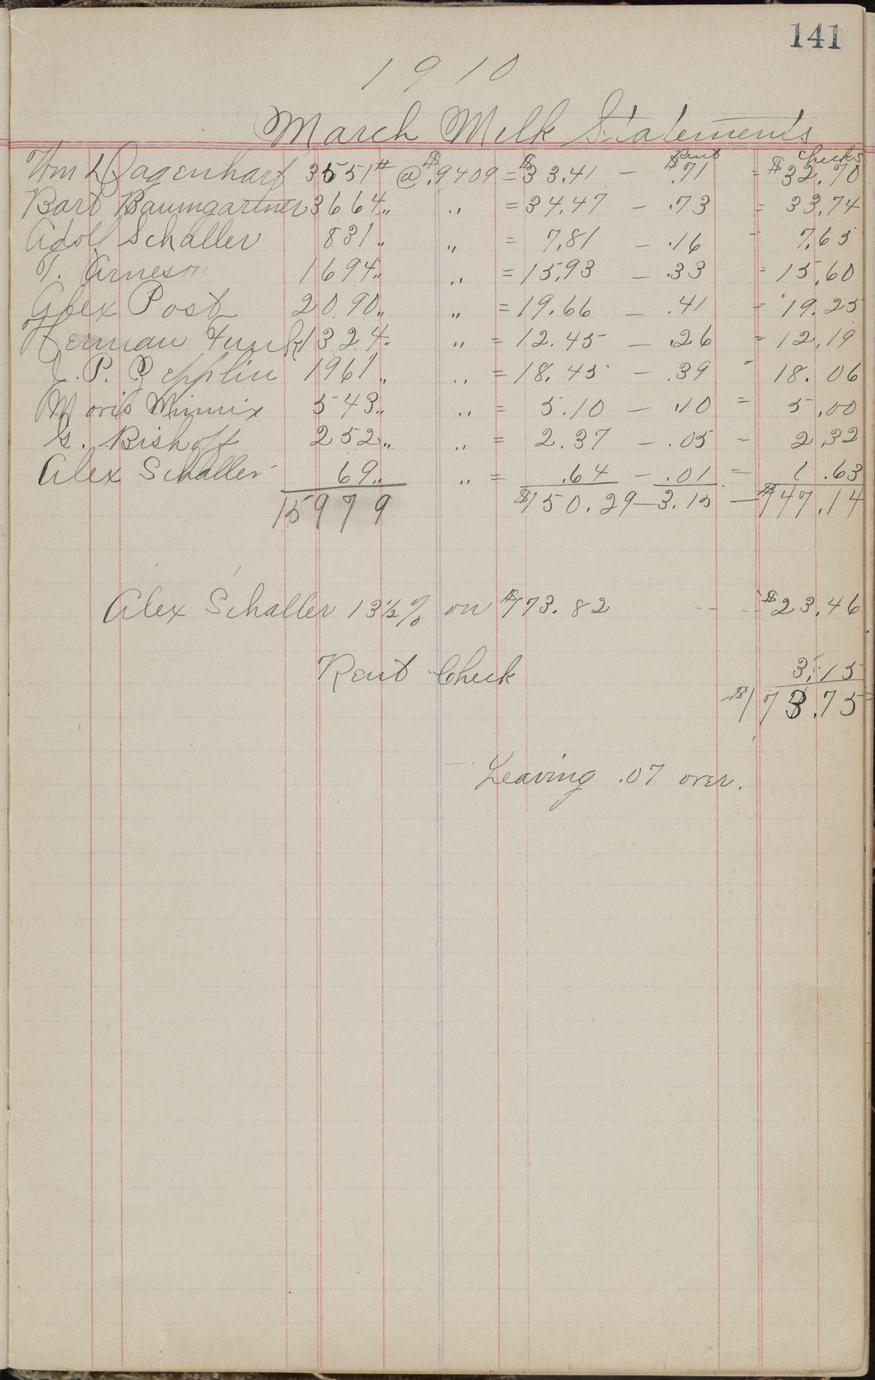 141
1910
March Milk Statements
Rent Checks
Wm L Dagenhart 3551# @ $.9409 = $33.41 - $.71 = $32.70
Bart Baumgartner 3664 " " = 34.47 - .73 = 33.74
Adolf Schaller 831 " " = 7.81 - .16 = 7.65
T. Arneson 1694 " " = 15.93 - .33 = 15.60
Alex Post 2090 " " = 19.66 - .41 = 19.25
Herman Funk 1324 " " = 12.45 - .26 = 12.19
J. P. Zepplin 1961 " " = 18.45 - .39 = 18.06
Moris Minnix 543 " " = 5.10 - .10 = 5.00
G. Bishoff 252 " " = 2.37 - .05 = 2.32
Alex Schaller 69 " " = .64 - .01 = .63
15979 $150.29 - 3.15 - $147.14
Alex Schaller 13½% on $173.82 -- $23.46
Rent Check 3.15
$173.75
Leaving .07 over.